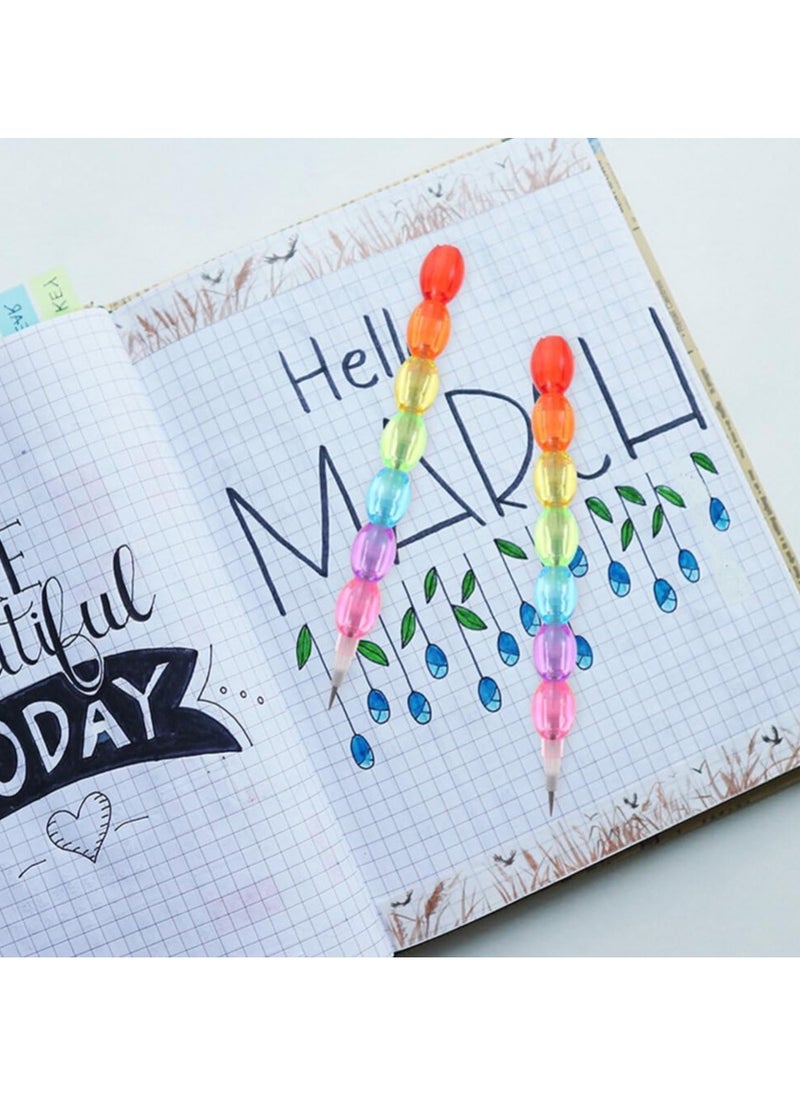 KEY
Hell
MARCH
E
utiful
ODAY